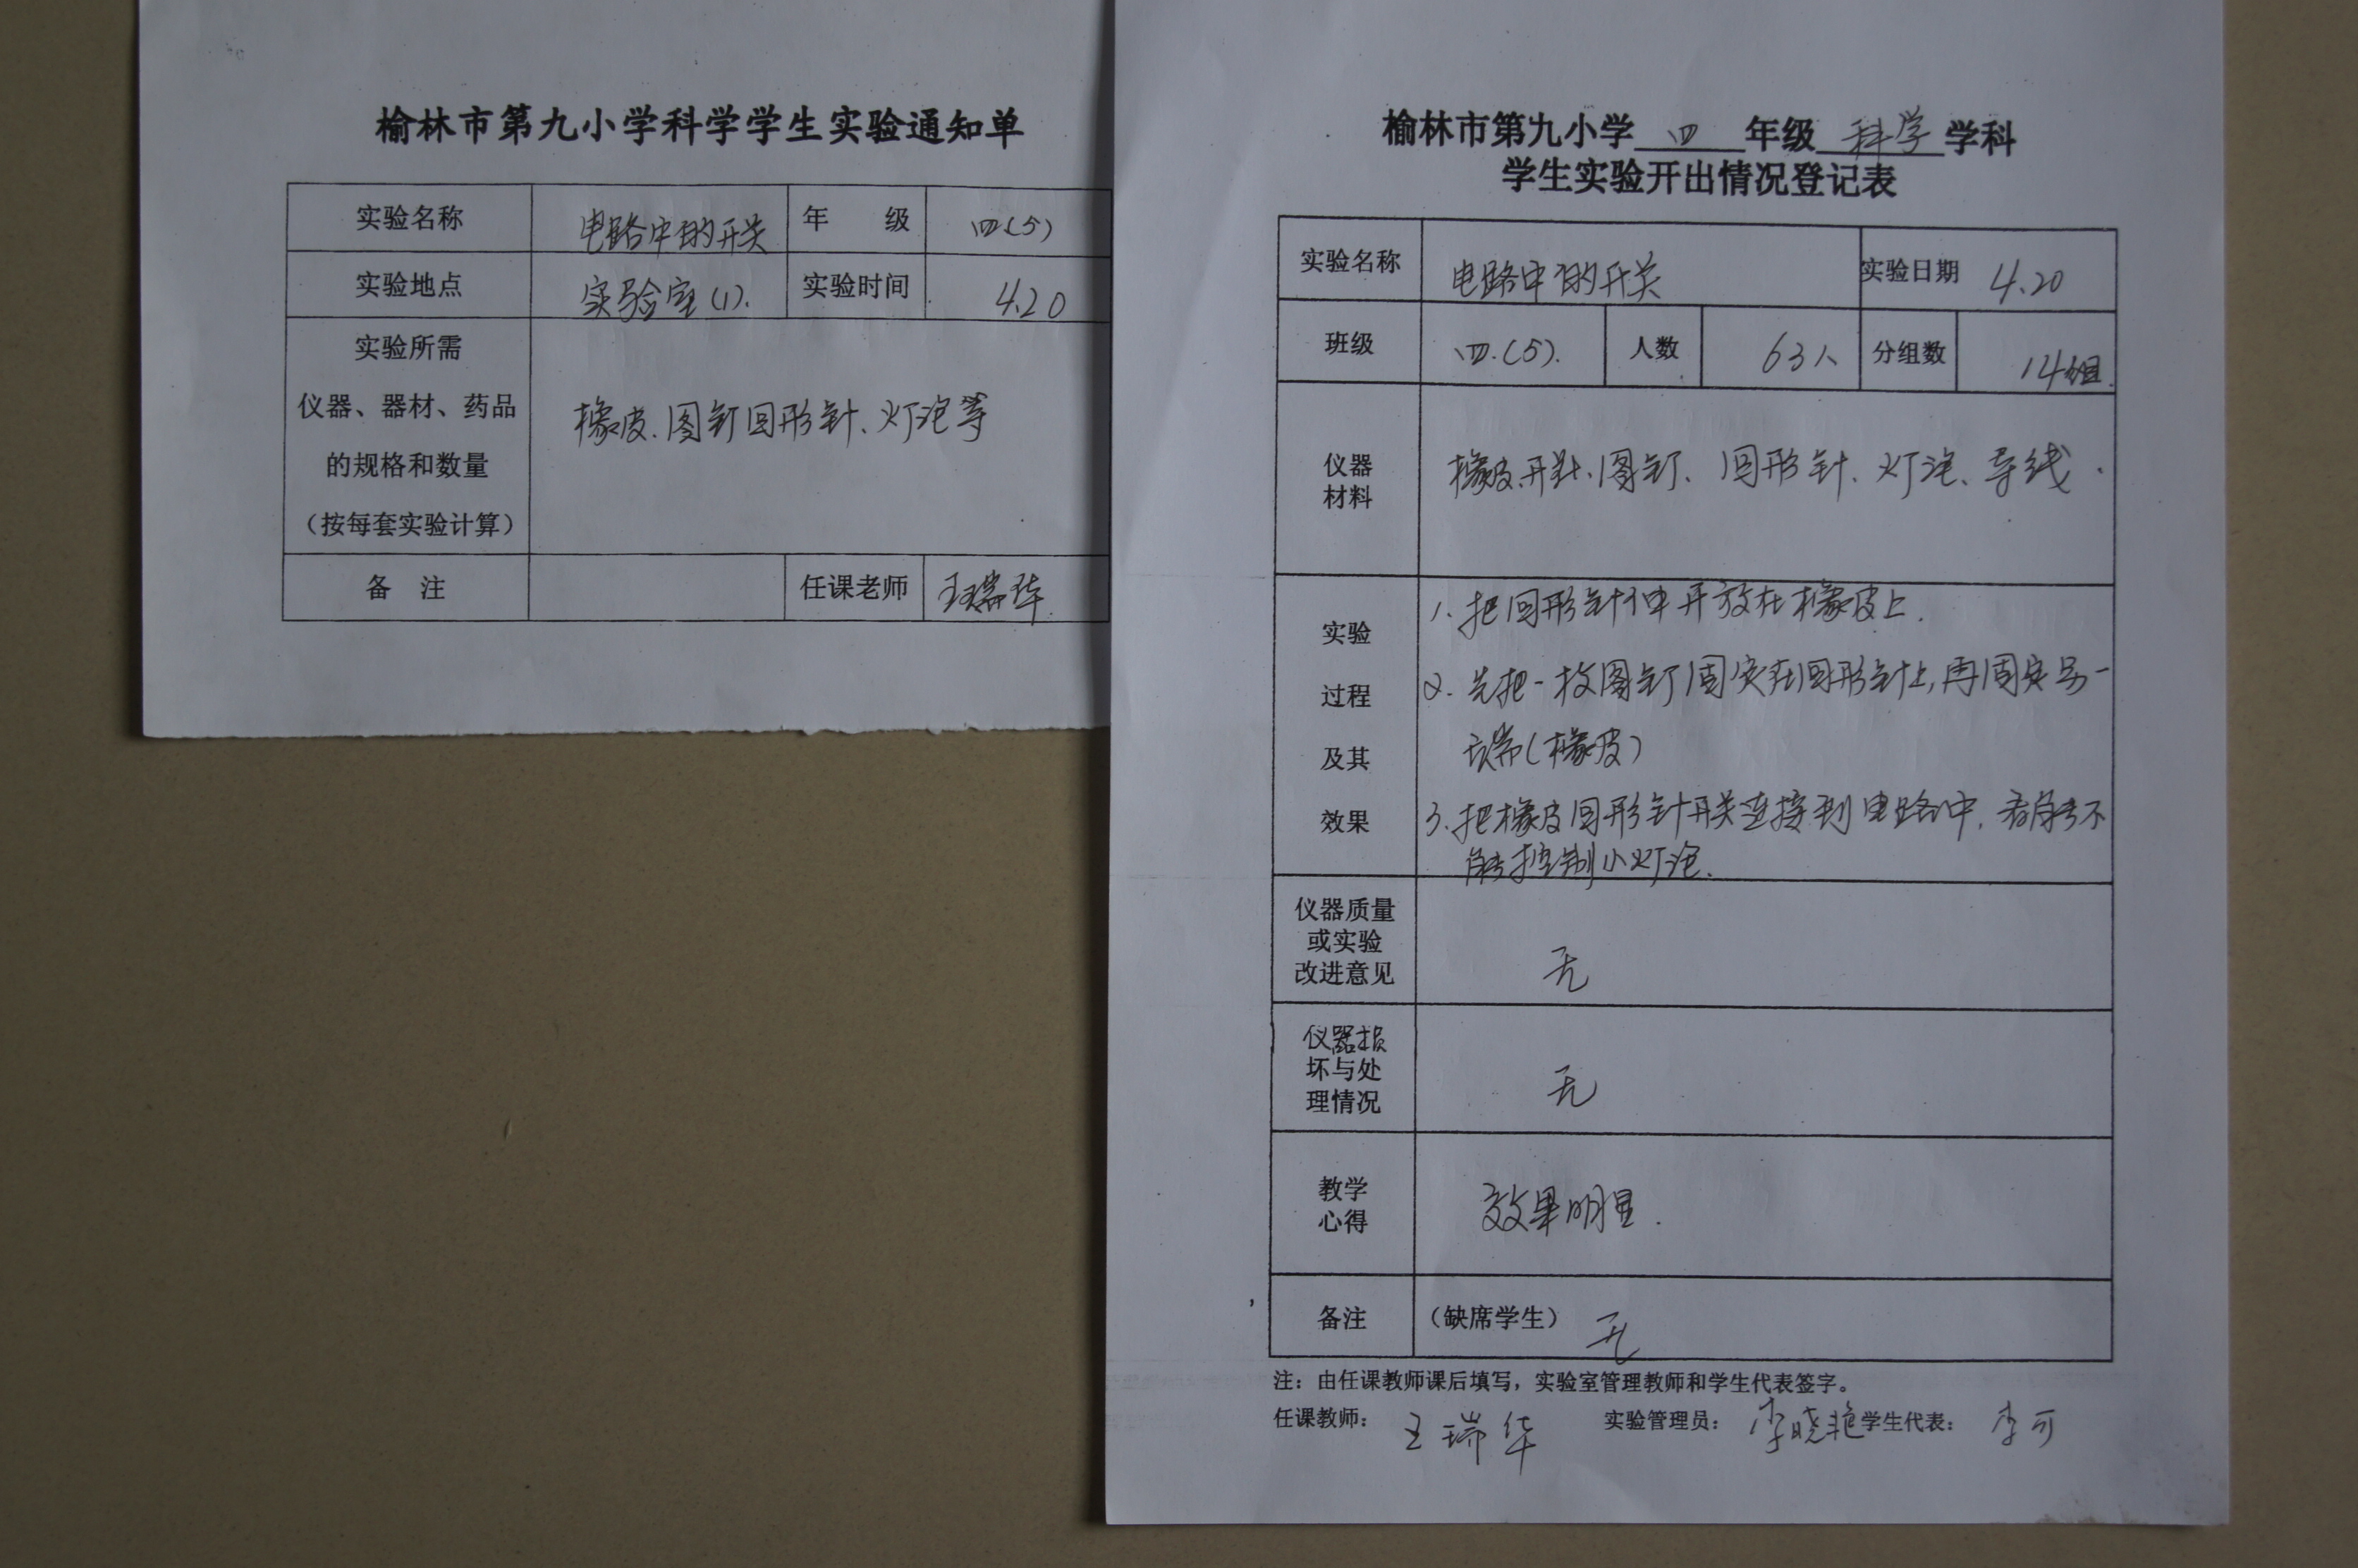 榆林市第九小学科学学生实验通知单
实验名称 电路中的开关 年 级 四(5)
实验地点 实验室(1). 实验时间 4.20
实验所需
仪器、器材、药品
的规格和数量
（按每套实验计算）
橡皮、图钉回形针、灯泡等
备 注 任课老师 王瑞华
榆林市第九小学 四 年级 科学 学科
学生实验开出情况登记表
实验名称 电路中的开关 实验日期 4.20
班级 四.(5). 人数 63人 分组数 14组.
仪器
材料
橡皮、图钉、回形针、灯泡、导线.
实验
过程
及其
效果
1.把回形针伸开放在橡皮上.
2.先把一枚图钉固定在回形针上,再固定另一
端(橡皮)
3.把橡皮回形针开关连接到电路中,看能不
能控制小灯泡.
仪器质量
或实验
改进意见
无
仪器损
坏与处
理情况
无
教学
心得
效果明显.
备注 （缺席学生） 无
注：由任课教师课后填写，实验室管理教师和学生代表签字。
任课教师： 王瑞华 实验管理员： 李晓艳 学生代表： 李可